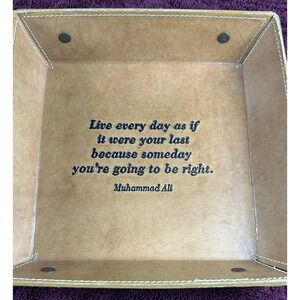 Live every day as if
it were your last
because someday
you're going to be right.
Muhammad Ali